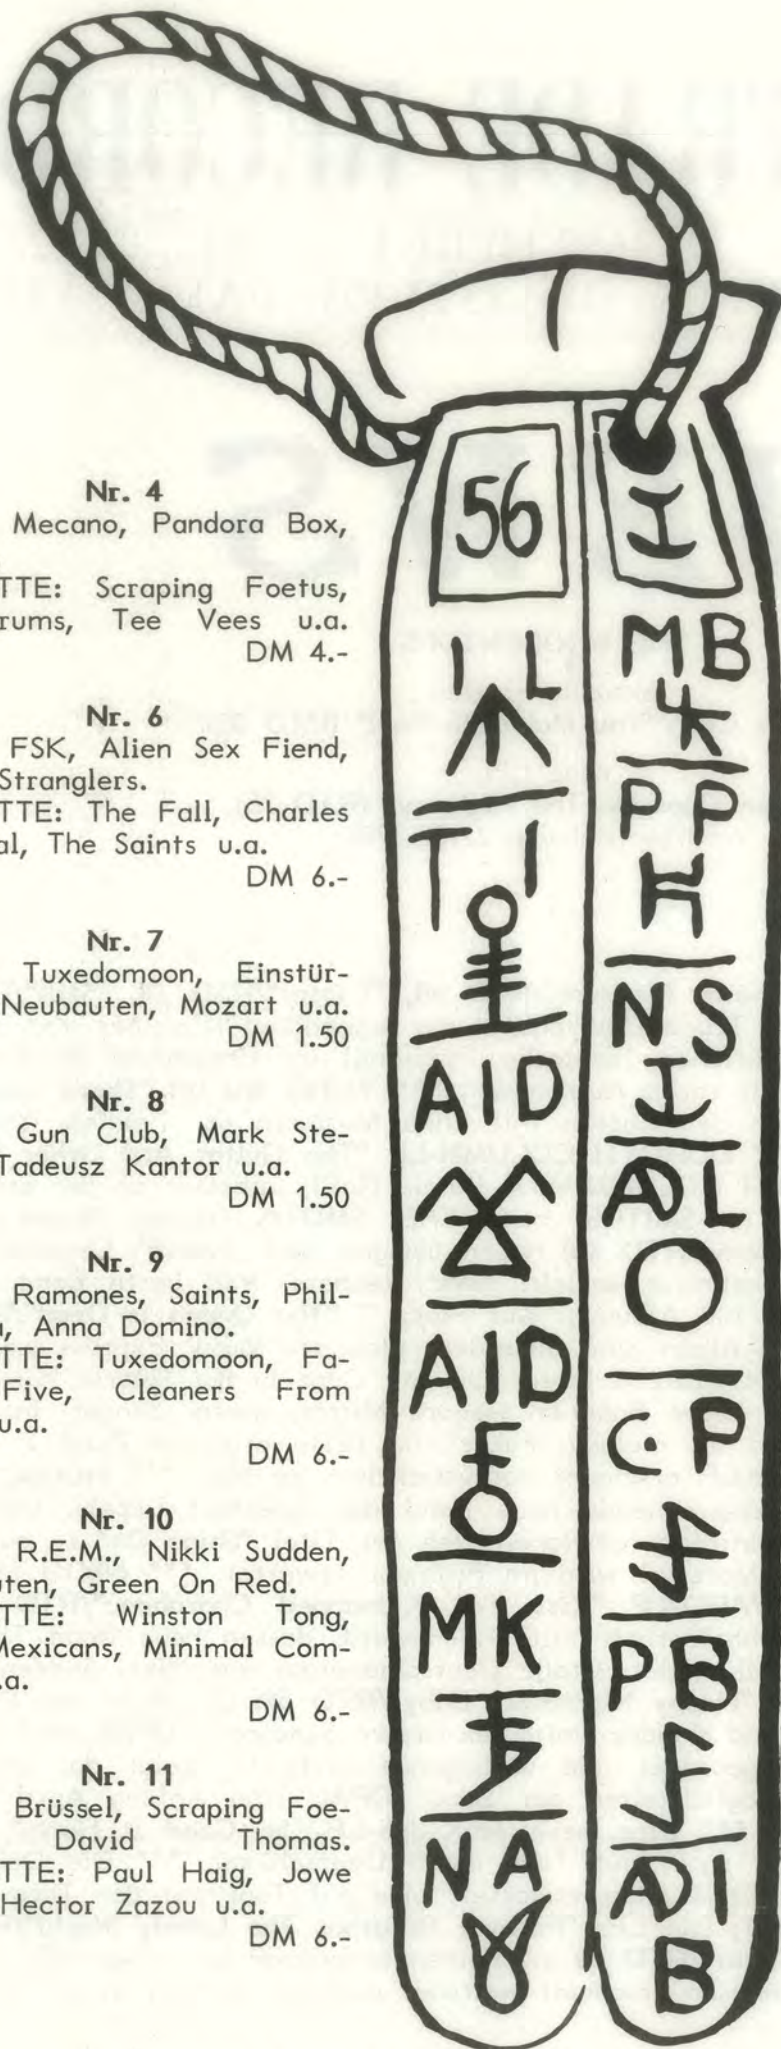 Nr. 4
Mecano, Pandora Box,
TTE: Scraping Foetus,
rums, Tee Vees u.a.
DM 4.-
Nr. 6
FSK, Alien Sex Fiend,
Stranglers.
TTE: The Fall, Charles
al, The Saints u.a.
DM 6.-
Nr. 7
Tuxedomoon, Einstür-
Neubauten, Mozart u.a.
DM 1.50
Nr. 8
Gun Club, Mark Ste-
Tadeusz Kantor u.a.
DM 1.50
Nr. 9
Ramones, Saints, Phil-
a, Anna Domino.
TTE: Tuxedomoon, Fa-
Five, Cleaners From
u.a.
DM 6.-
Nr. 10
R.E.M., Nikki Sudden,
uten, Green On Red.
TTE: Winston Tong,
Mexicans, Minimal Com-
.a.
DM 6.-
Nr. 11
Brüssel, Scraping Foe-
David Thomas.
TTE: Paul Haig, Jowe
Hector Zazou u.a.
DM 6.-
56
I L
T I
AID
AID
MK
NA
I
MB
PP
H
NS
AL
O
P
PB
ADI
B